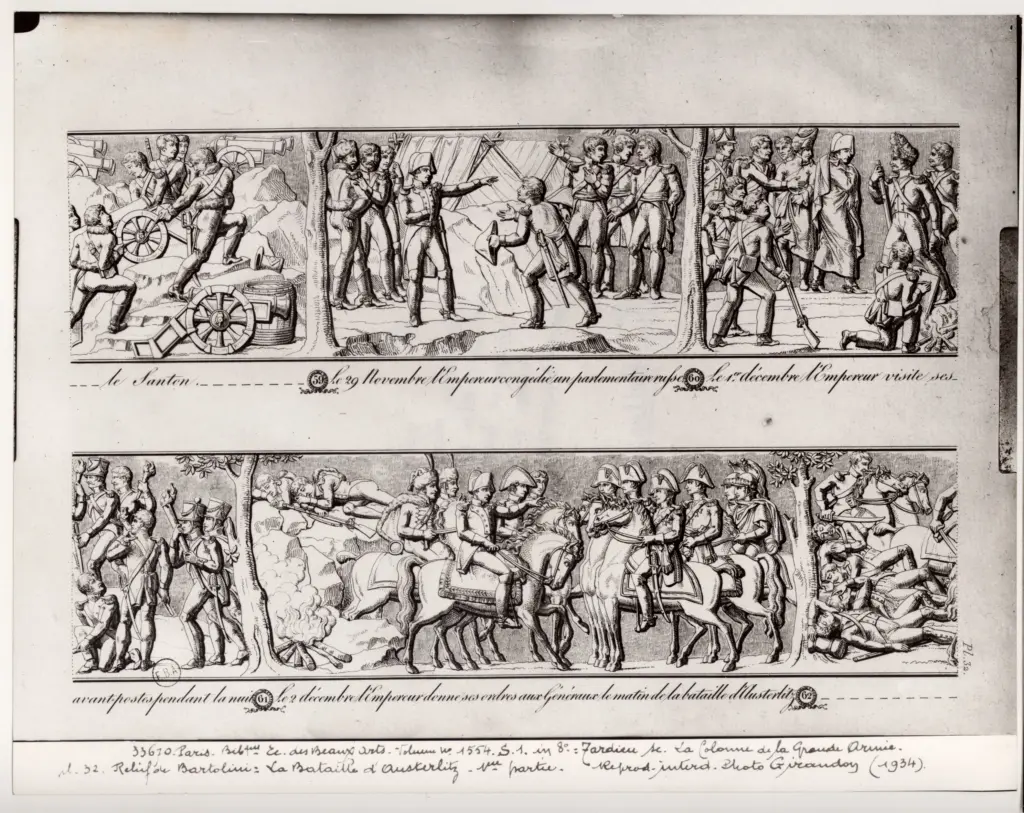 le Santon. 59 le 29 Novembre l'Empereur congédie un parlementaire russe 60 le 1.er décembre l'Empereur visite ses
avant postes pendant la nuit 61 le 2 décembre l'Empereur donne ses ordres aux Généraux le matin de la bataille d'Austerlitz 62
Pl. 32
E.B.A
33670. Paris. Bibque Ec. des Beaux Arts. Volume No 1554. S. 1. in 8o. = Tardieu sc. La Colonne de la Grande Armée.
pl. 32. Relief de Bartolini = La Bataille d'Austerlitz - 1ère partie. - Reprod. interd. Photo Giraudon (1934).